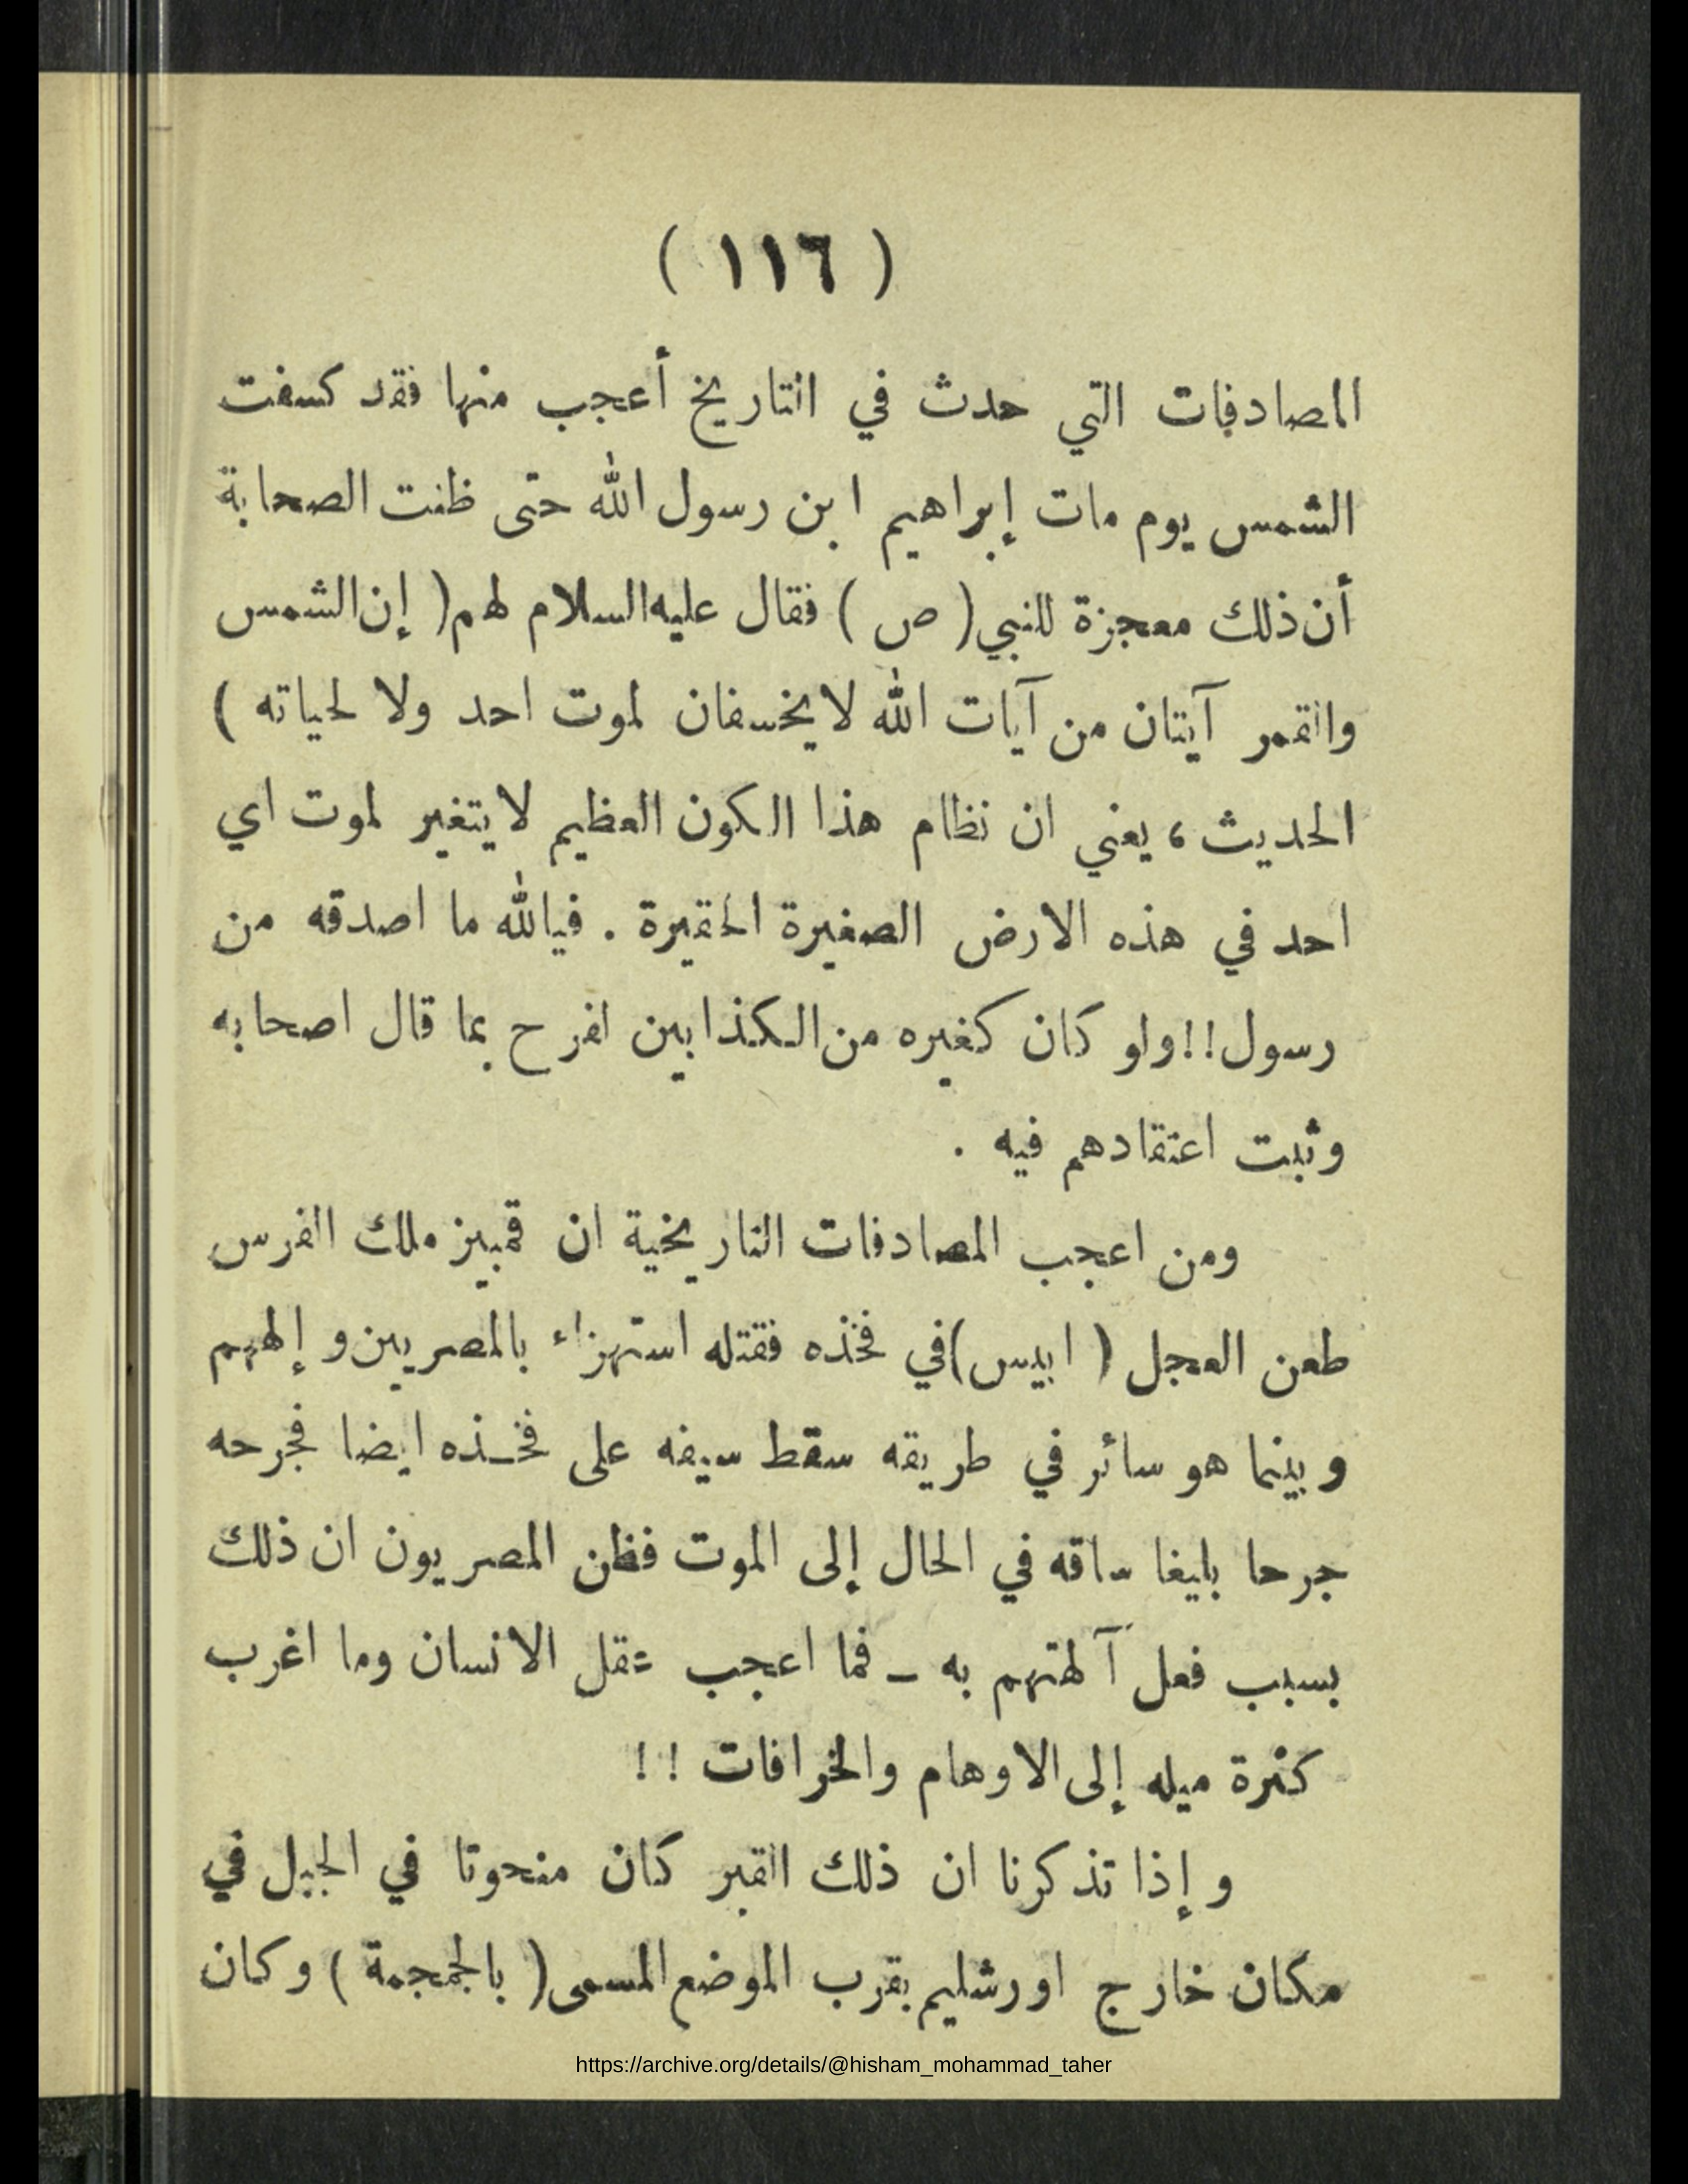 ( ١١٦ )
المصادفات التي حدث في التاريخ أعجب منها فقد كسفت
الشمس يوم مات إبراهيم ابن رسول الله حتى ظنت الصحابة
أن ذلك معجزة للنبي ( ص ) فقال عليه السلام لهم ( إن الشمس
والقمر آيتان من آيات الله لا يخسفان لموت احد ولا لحياته )
الحديث ، يعني ان نظام هذا الكون العظيم لا يتغير لموت اي
احد في هذه الارض الصغيرة الحقيرة . فيالله ما اصدقه من
رسول !! ولو كان كغيره من الكذابين لفرح بما قال اصحابه
وثبت اعتقادهم فيه .
ومن اعجب المصادفات التاريخية ان قمبيز ملك الفرس
طعن العجل ( ابيس ) في فخذه فقتله استهزاء بالمصريين و إلههم
و بينما هو سائر في طريقه سقط سيفه على فخذه ايضا فجرحه
جرحا بليغا ساقه في الحال إلى الموت فظن المصريون ان ذلك
بسبب فعل آلهتهم به – فما اعجب عقل الانسان وما اغرب
كثرة ميله إلى الاوهام والخرافات !!
و إذا تذكرنا ان ذلك القبر كان منحوتا في الجبل في
مكان خارج اورشليم بقرب الموضع المسمى ( بالجمجمة ) وكان
https://archive.org/details/@hisham_mohammad_taher